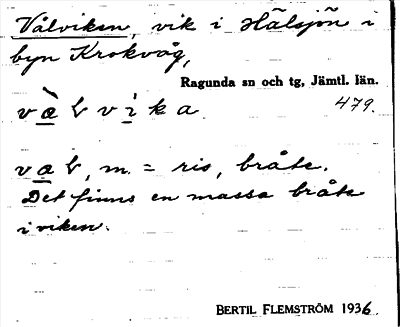 Välviken, vik i Hälsjön i
byn Krokvåg,
Ragunda sn och tg, Jämtl. län.
479.
m. = ris, bråte.
Det finns en massa bråte
i viken.
BERTIL FLEMSTRÖM 1936.